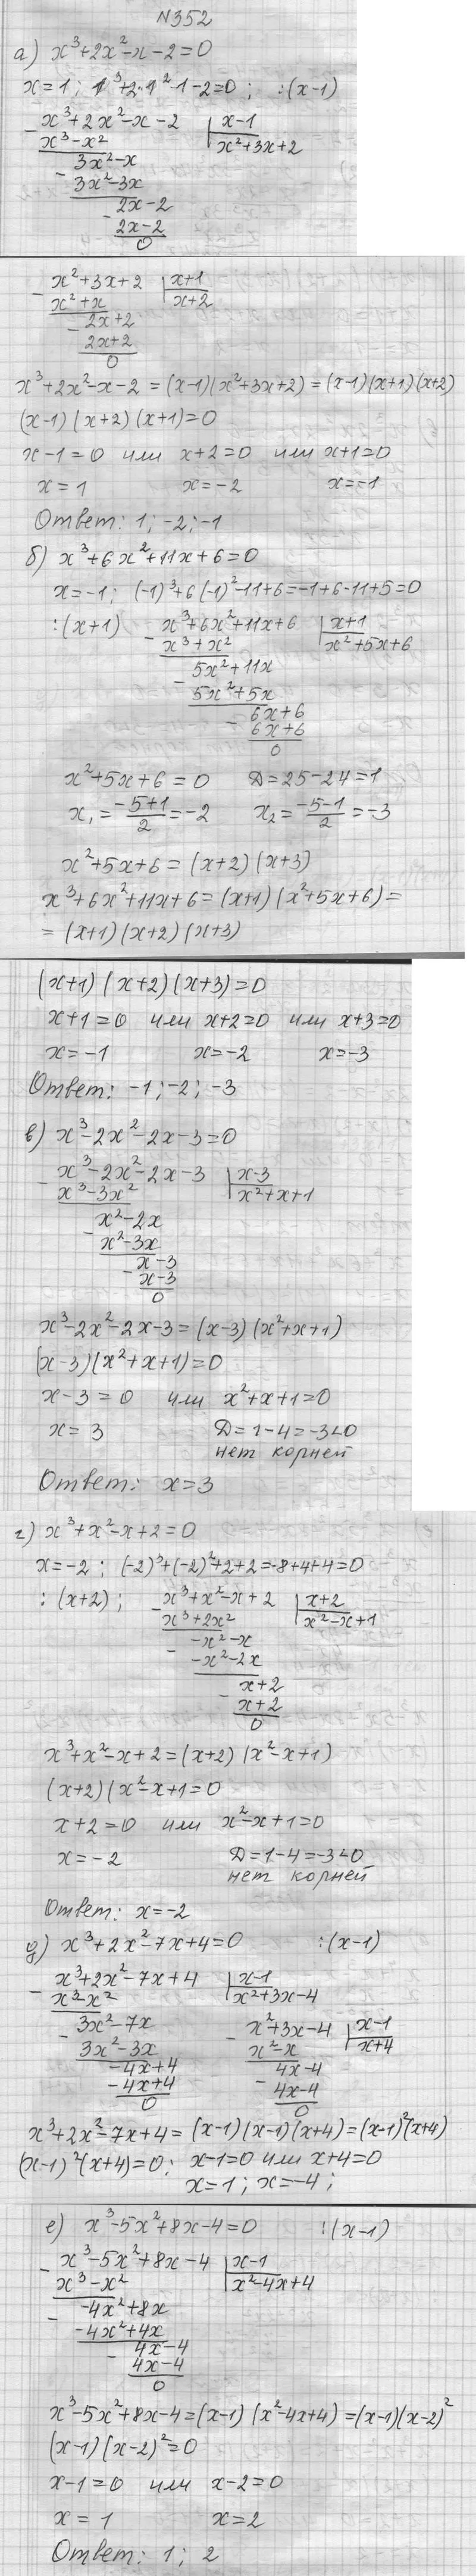 N352
а) x³+2x²-x-2=0
x=1; 1³+2·1²-1-2=0; :(x-1)
x³+2x²-x-2 | x-1
x³-x² x²+3x+2
3x²-x
3x²-3x
2x-2
2x-2
0
x²+3x+2 | x+1
x²+x x+2
2x+2
2x+2
0
x³+2x²-x-2=(x-1)(x²+3x+2)=(x-1)(x+1)(x+2)
(x-1)(x+2)(x+1)=0
x-1=0 или x+2=0 или x+1=0
x=1 x=-2 x=-1
Ответ: 1; -2; -1
б) x³+6x²+11x+6=0
x=-1; (-1)³+6(-1)²-11+6=-1+6-11+5=0
:(x+1) x³+6x²+11x+6 | x+1
x³+x² x²+5x+6
5x²+11x
5x²+5x
6x+6
6x+6
0
x²+5x+6=0 D=25-24=1
x₁=(-5+1)/2=-2 x₂=(-5-1)/2=-3
x²+5x+6=(x+2)(x+3)
x³+6x²+11x+6=(x+1)(x²+5x+6)=
=(x+1)(x+2)(x+3)
(x+1)(x+2)(x+3)=0
x+1=0 или x+2=0 или x+3=0
x=-1 x=-2 x=-3
Ответ: -1; -2; -3
в) x³-2x²-2x-3=0
x³-2x²-2x-3 | x-3
x³-3x² x²+x+1
x²-2x
x²-3x
x-3
x-3
0
x³-2x²-2x-3=(x-3)(x²+x+1)
(x-3)(x²+x+1)=0
x-3=0 или x²+x+1=0
x=3 D=1-4=-3<0
нет корней
Ответ: x=3
г) x³+x²-x+2=0
x=-2; (-2)³+(-2)²+2+2=-8+4+4=0
:(x+2); x³+x²-x+2 | x+2
x³+2x² x²-x+1
-x²-x
-x²-2x
x+2
x+2
0
x³+x²-x+2=(x+2)(x²-x+1)
(x+2)(x²-x+1=0
x+2=0 или x²-x+1=0
x=-2 D=1-4=-3<0
нет корней
Ответ: x=-2
д) x³+2x²-7x+4=0 :(x-1)
x³+2x²-7x+4 | x-1
x³-x² x²+3x-4
3x²-7x x²+3x-4 | x-1
3x²-3x x²-x x+4
-4x+4 4x-4
-4x+4 4x-4
0 0
x³+2x²-7x+4=(x-1)(x-1)(x+4)=(x-1)²(x+4)
(x-1)²(x+4)=0; x-1=0 или x+4=0
x=1; x=-4;
е) x³-5x²+8x-4=0 :(x-1)
x³-5x²+8x-4 | x-1
x³-x² x²-4x+4
-4x²+8x
-4x²+4x
4x-4
4x-4
0
x³-5x²+8x-4=(x-1)(x²-4x+4)=(x-1)(x-2)²
(x-1)(x-2)²=0
x-1=0 или x-2=0
x=1 x=2
Ответ: 1; 2